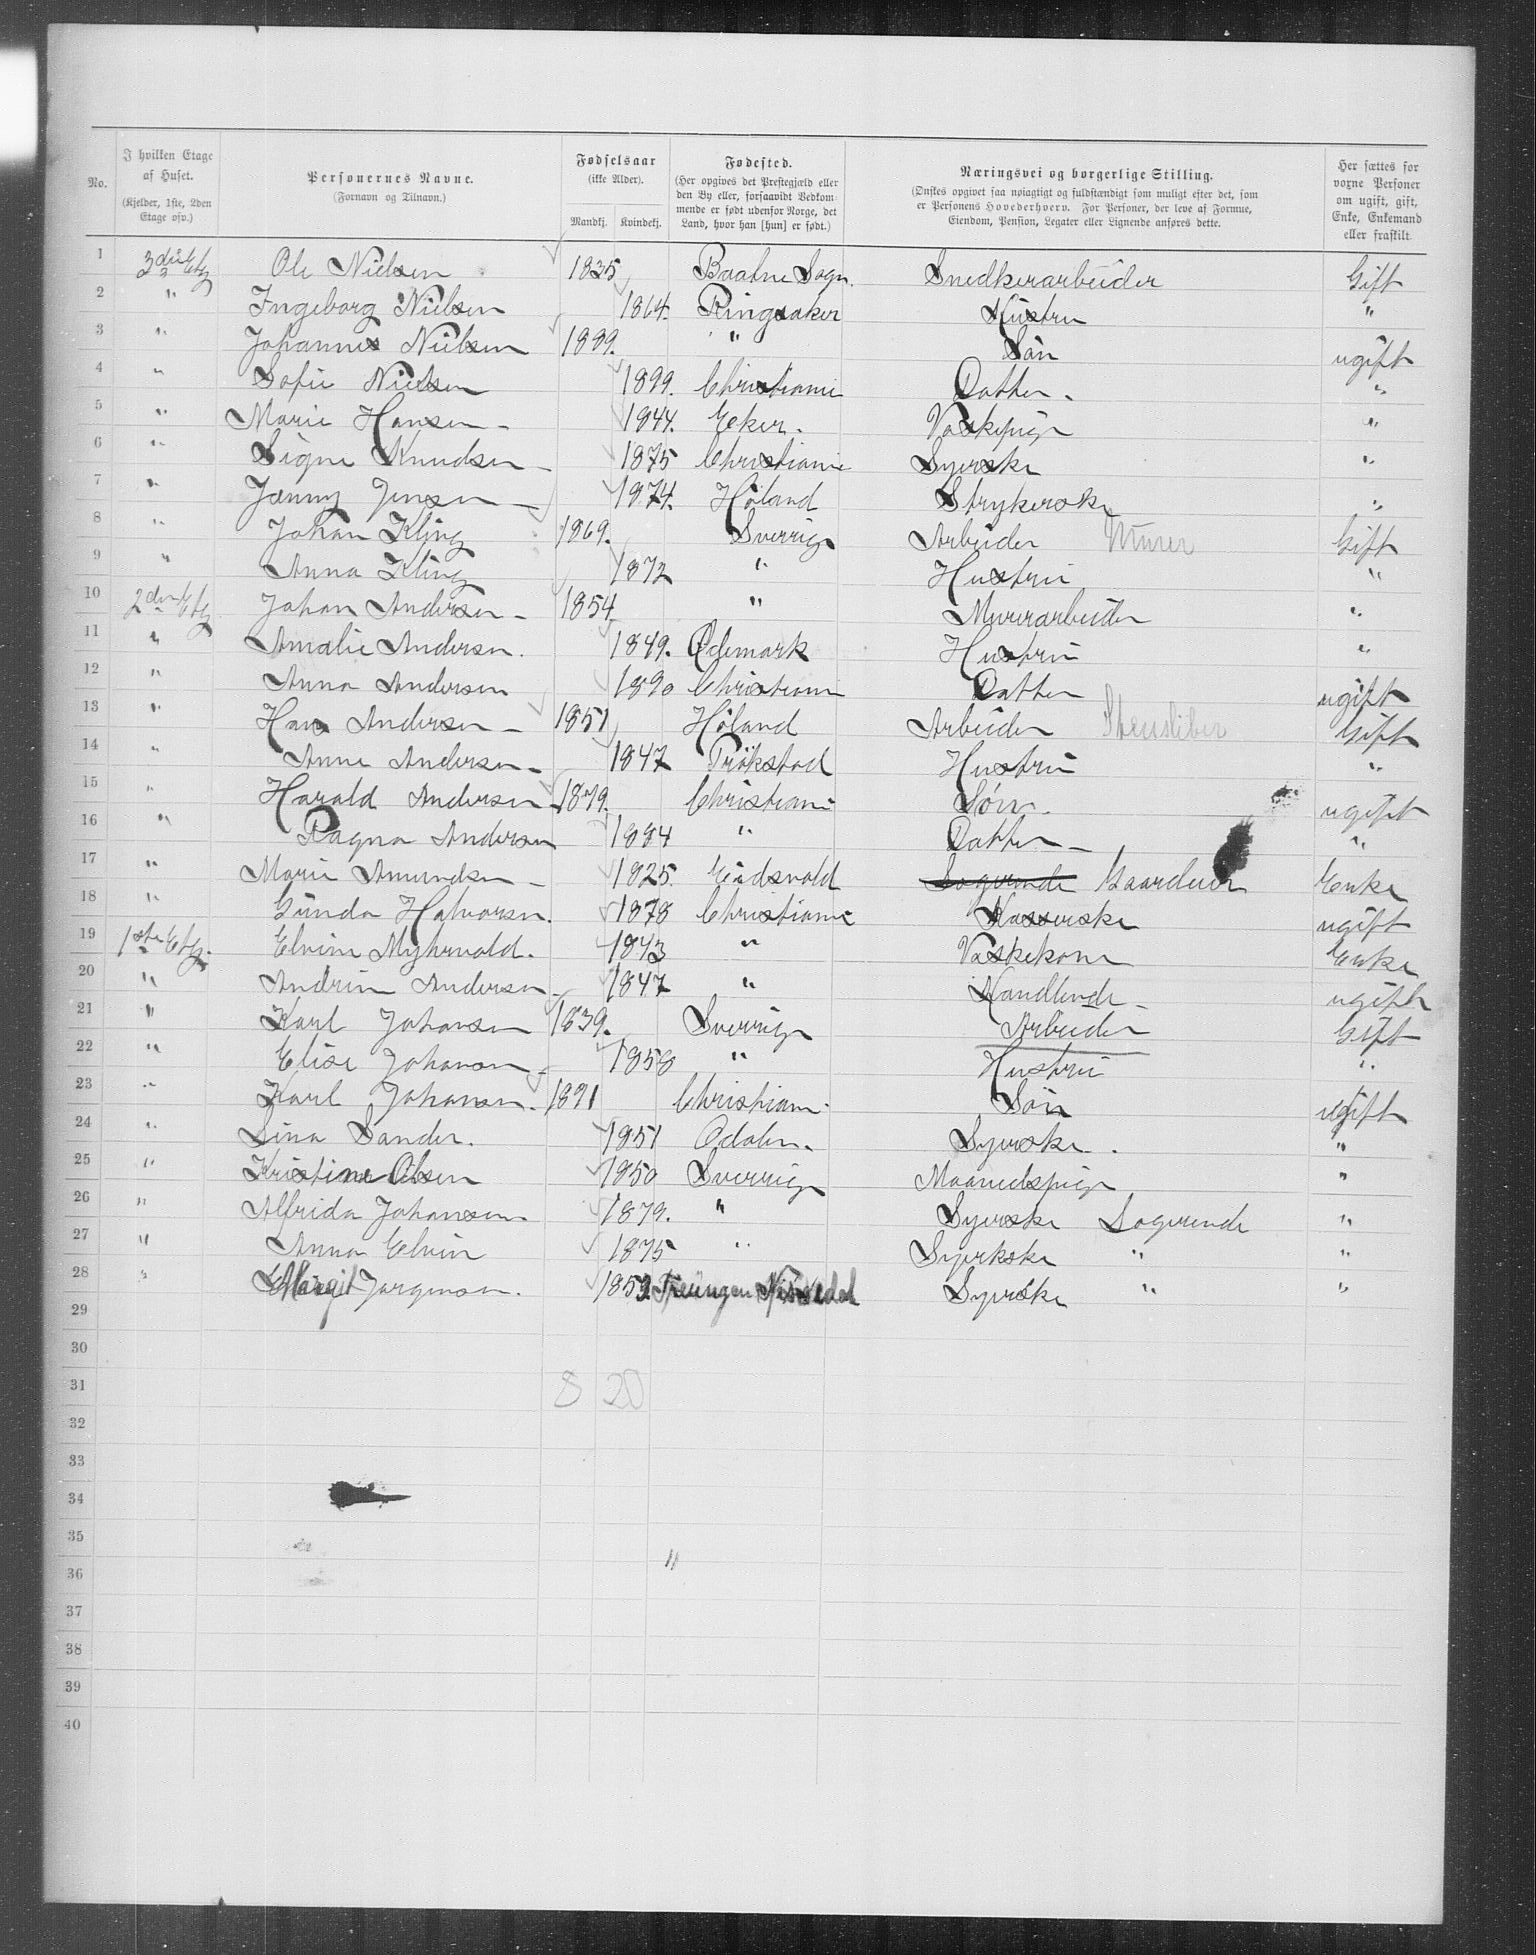 No. | I hvilken Etage af Huset. (Kjelder, 1ste, 2den Etage osv.) | Personernes Navne. (Fornavn og Tilnavn.) | Fødselsaar (ikke Alder). Mandkj. | Kvindekj. | Fødested. (Her opgives det Prestegjæld eller den By eller, forsaavidt Vedkommende er født udenfor Norge, det Land, hvor han [hun] er født.) | Næringsvei og borgerlige Stilling. (Ønskes opgivet saa nøiagtigt og fuldstændigt som muligt efter det, som er Personens Hovederhverv. For Personer, der leve af Formue, Eiendom, Pension, Legater eller Lignende anføres dette. | Her sættes for voxne Personer om ugift, gift, Enke, Enkemand eller fraskilt.
1 3die Etg Ole Nielsen 1835 Baatne Sogn. Snedkerarbeider Gift
2 " Ingeborg Nielsen 1864. Ringsaker Hustru "
3 " Johannes Nielsen 1889. " Søn ugift
4 " Sofie Nielsen 1899. Christiania Datter. "
5 " Marie Hansen - 1844. Eker. Vaskepige "
6 " Signe Knudsen - 1875 Christiania Syerske "
7 " Jenny Jensen - 1874. Høland Strykerske "
8 " Johan Kling 1869. Sverrige Arbeider Murer Gift
9 " Anna Kling 1872 " Hustru "
10 2den Etg Johan Andersen - 1854 " Murerarbeider "
11 " Amalie Andersen. 1849. Ødemark Hustru "
12 " Anna Andersen 1890 Christiania Datter ugift
13 " Hans Andersen - 1851 Høland Arbeider Stensliber Gift
14 " Anne Andersen - 1847 Trøkstad Hustru "
15 " Harald Andersen 1879. Christiania Søn. ugift
16 " Ragna Andersen 1884 " Datter - "
17 " Marie Amundsen - 1825. Eidsvold Logerende Gaardeier Enke
18 " Gunda Halvorsen. 1878 Christiania Kasserske ugift
19 1ste Etg. Elvine Myhrvold. 1843 " Vaskekone Enke
20 " Andrine Andersen 1847 " Handlende - ugift
21 " Karl Johansen 1839. Sverrige Arbeider Gift
22 " Elise Johansen 1858 " Hustru "
23 " Karl Johansen. 1891 Christiania Søn ugift
24 " Lina Sander. 1851 Odalen. Syerske. "
25 " Kristine Olsen 1850 Sverrige Maanedspige "
26 " Alfrida Johansen. 1879. " Syerske Logerende "
27 " Anna Elvin 1875 " Syerkske " "
28 " Margit Jørgensen. 1859. Treungen Nissedal Syerske " "
29
30
31 8 20
32
33
34
35
36 "
37
38
39
40